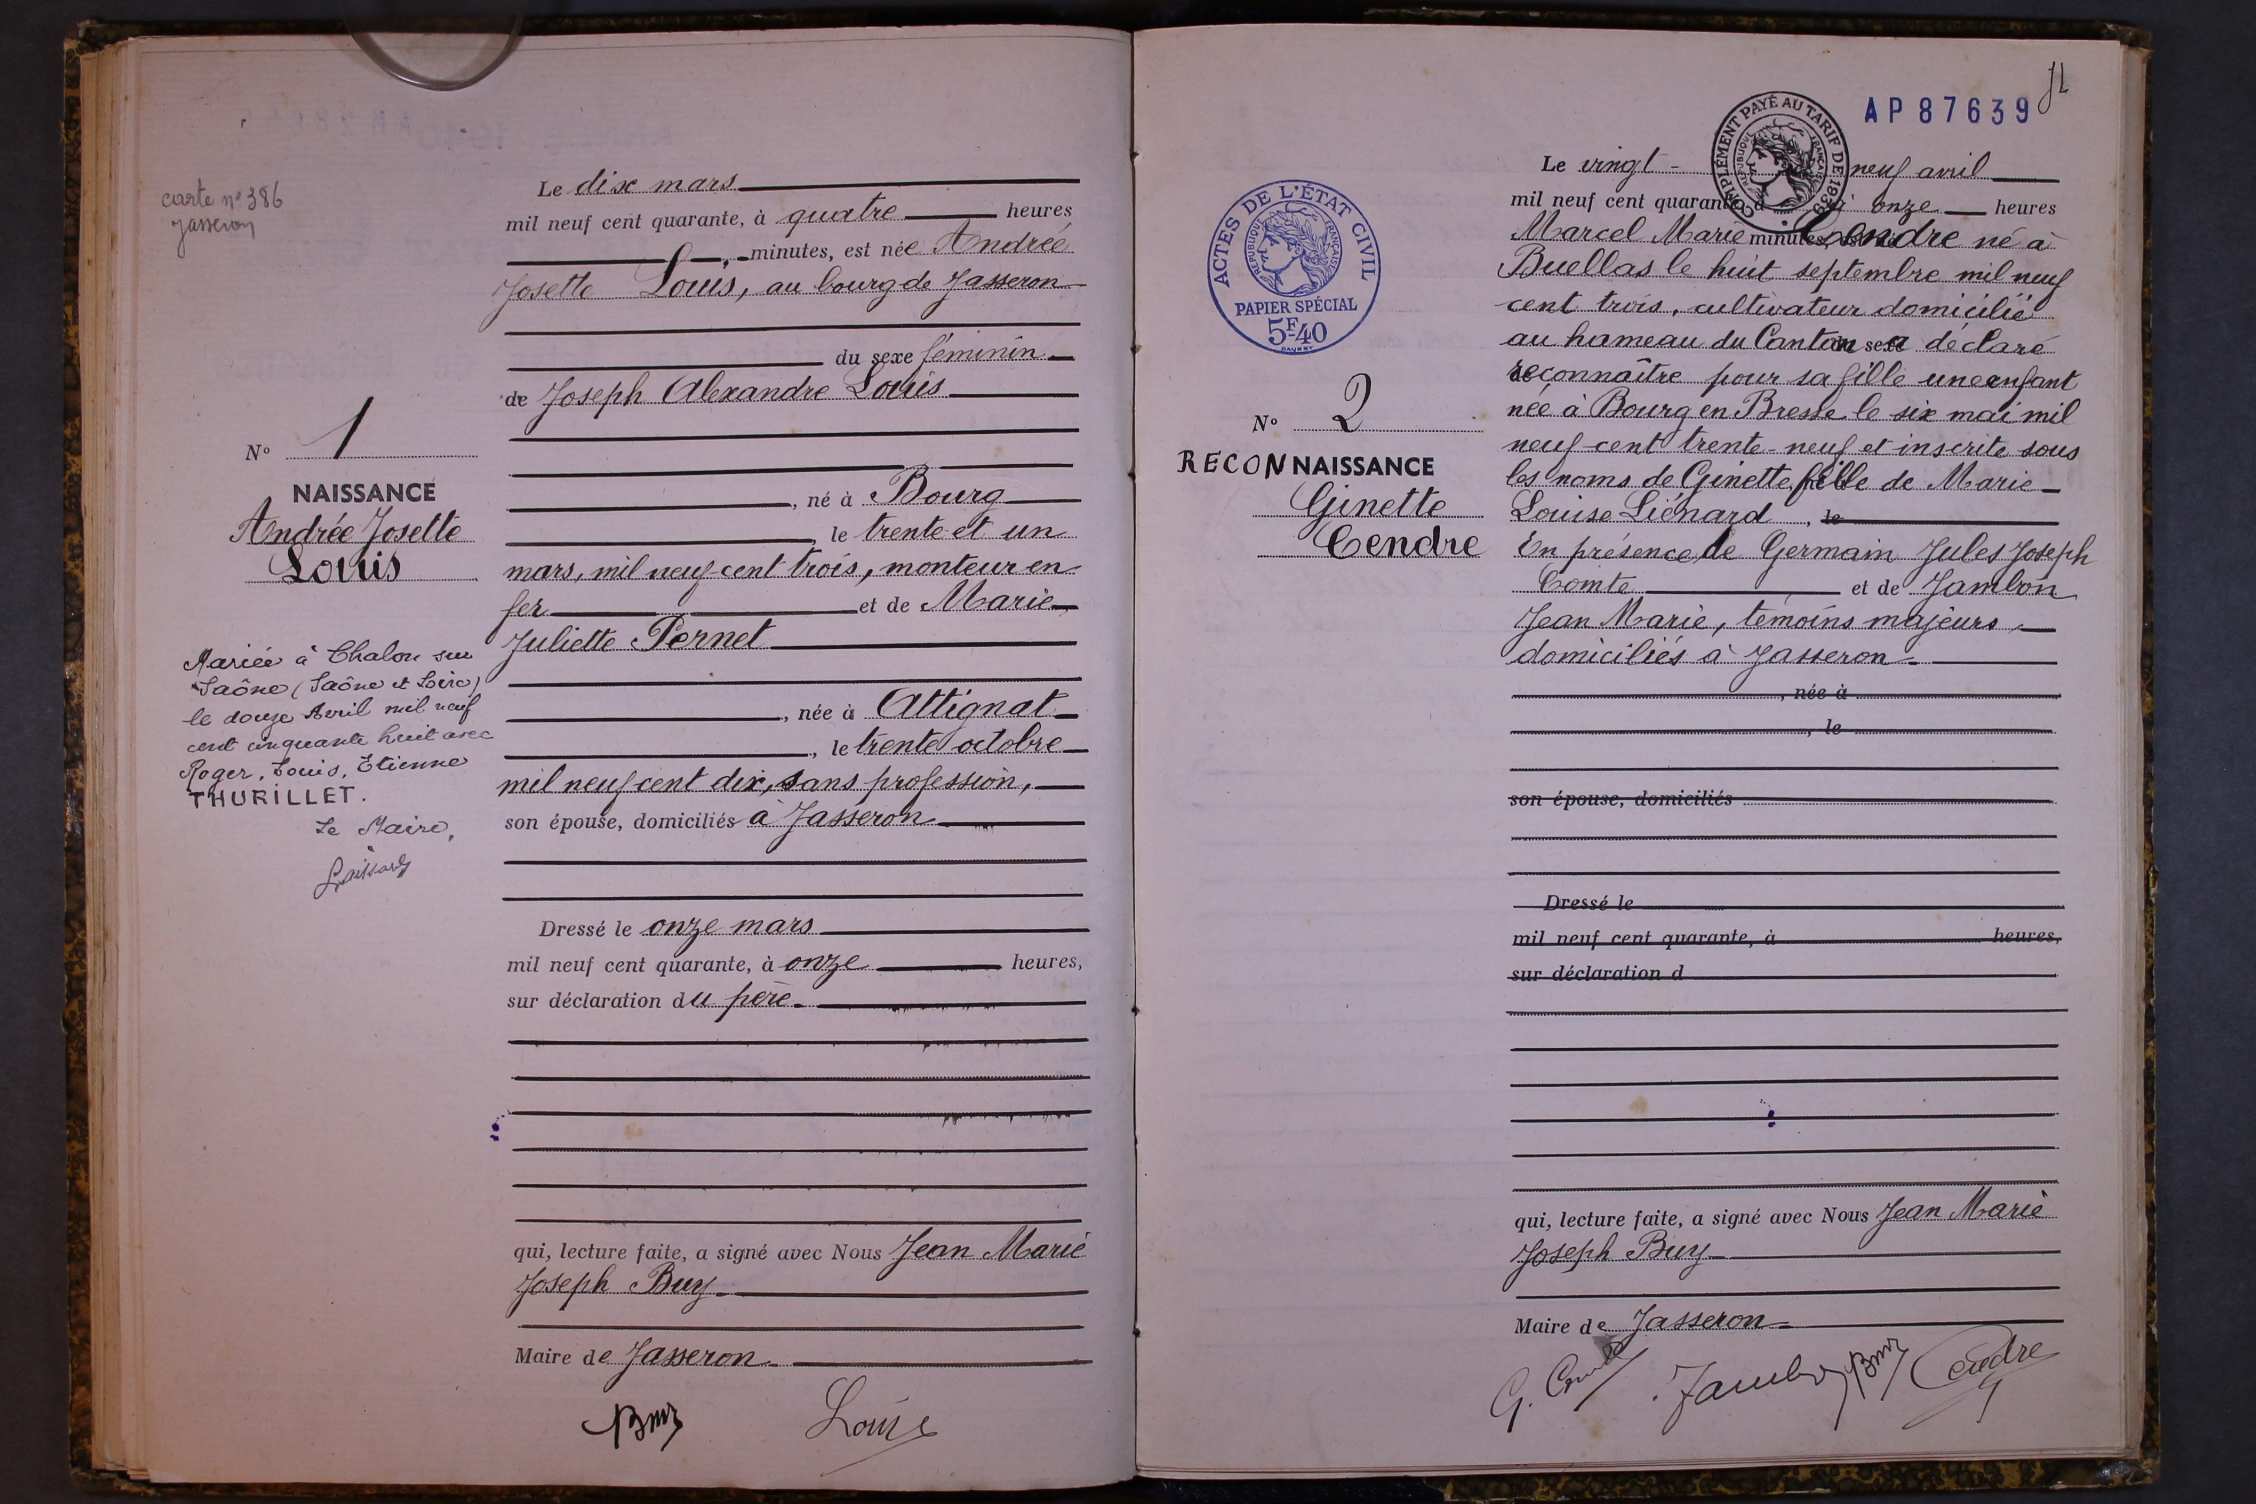 carte n° 386
Jasseron
N° 1
NAISSANCE
Andrée Josette
Louis
Mariée à Chalon sur
Saône (Saône et Loire)
le douze Avril mil neuf
cent cinquante huit avec
Roger, Louis, Etienne
THURILLET.
Le Maire,
Le dix mars
mil neuf cent quarante, à quatre heures
minutes, est née Andrée
Josette Louis, au bourg de Jasseron
du sexe féminin
de Joseph Alexandre Louis
, né à Bourg
, le trente et un
mars, mil neuf cent trois, monteur en
fer et de Marie
Juliette Pernet
, née à Attignat
, le trente octobre
mil neuf cent dix, sans profession,
son épouse, domiciliés à Jasseron
Dressé le onze mars
mil neuf cent quarante, à onze heures,
sur déclaration du père.
qui, lecture faite, a signé avec Nous Jean Marie
Joseph Buy
Maire de Jasseron
Buy Louis
AP 87639
COMPLÉMENT PAYÉ AU TARIF DE 1938
REPUBLIQUE FRANÇAISE
ACTES DE L'ÉTAT CIVIL
REPUBLIQUE FRANÇAISE
PAPIER SPÉCIAL
5F40
N° 2
RECONNAISSANCE
Ginette
Cendre
Le vingt-neuf avril
mil neuf cent quarante, à onze heures
Marcel Marie minutes, Cendre né à
Buellas le huit septembre mil neuf
cent trois, cultivateur domicilié
au hameau du Canton sexe a déclaré
reconnaître pour sa fille une enfant
née à Bourg en Bresse le six mai mil
neuf cent trente-neuf et inscrite sous
les noms de Ginette, fille de Marie
Louise Liénard, le
En présence de Germain Jules Joseph
Comte et de Jambon
Jean Marie, témoins majeurs,
domiciliés à Jasseron
, née à
, le
son épouse, domiciliés
Dressé le
mil neuf cent quarante, à heures,
sur déclaration d
qui, lecture faite, a signé avec Nous Jean Marie
Joseph Buy
Maire de Jasseron
G. Comte Jambon Buy Cendre